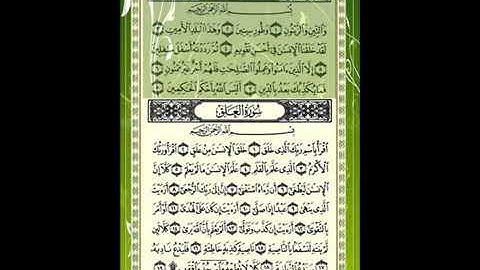 بِسْمِ اللَّهِ الرَّحْمَٰنِ الرَّحِيمِ
وَالتِّينِ وَالزَّيْتُونِ ١ وَطُورِ سِينِينَ ٢ وَهَٰذَا الْبَلَدِ الْأَمِينِ ٣
لَقَدْ خَلَقْنَا الْإِنسَٰنَ فِي أَحْسَنِ تَقْوِيمٍ ٤ ثُمَّ رَدَدْنَٰهُ أَسْفَلَ سَٰفِلِينَ ٥
إِلَّا الَّذِينَ ءَامَنُوا وَعَمِلُوا الصَّٰلِحَٰتِ فَلَهُمْ أَجْرٌ غَيْرُ مَمْنُونٍ ٦
فَمَا يُكَذِّبُكَ بَعْدُ بِالدِّينِ ٧ أَلَيْسَ اللَّهُ بِأَحْكَمِ الْحَٰكِمِينَ ٨
سُورَةُ الْعَلَقِ
بِسْمِ اللَّهِ الرَّحْمَٰنِ الرَّحِيمِ
اقْرَأْ بِاسْمِ رَبِّكَ الَّذِي خَلَقَ ١ خَلَقَ الْإِنسَٰنَ مِنْ عَلَقٍ ٢ اقْرَأْ وَرَبُّكَ
الْأَكْرَمُ ٣ الَّذِي عَلَّمَ بِالْقَلَمِ ٤ عَلَّمَ الْإِنسَٰنَ مَا لَمْ يَعْلَمْ ٥ كَلَّا إِنَّ
الْإِنسَٰنَ لَيَطْغَىٰ ٦ أَن رَّءَاهُ اسْتَغْنَىٰ ٧ إِنَّ إِلَىٰ رَبِّكَ الرُّجْعَىٰ ٨ أَرَءَيْتَ
الَّذِي يَنْهَىٰ ٩ عَبْدًا إِذَا صَلَّىٰ ١٠ أَرَءَيْتَ إِن كَانَ عَلَى الْهُدَىٰ ١١ أَوْ أَمَرَ
بِالتَّقْوَىٰ ١٢ أَرَءَيْتَ إِن كَذَّبَ وَتَوَلَّىٰ ١٣ أَلَمْ يَعْلَم بِأَنَّ اللَّهَ يَرَىٰ ١٤ كَلَّا لَئِن
لَّمْ يَنتَهِ لَنَسْفَعًا بِالنَّاصِيَةِ ١٥ نَاصِيَةٍ كَٰذِبَةٍ خَاطِئَةٍ ١٦ فَلْيَدْعُ نَادِيَهُ ١٧